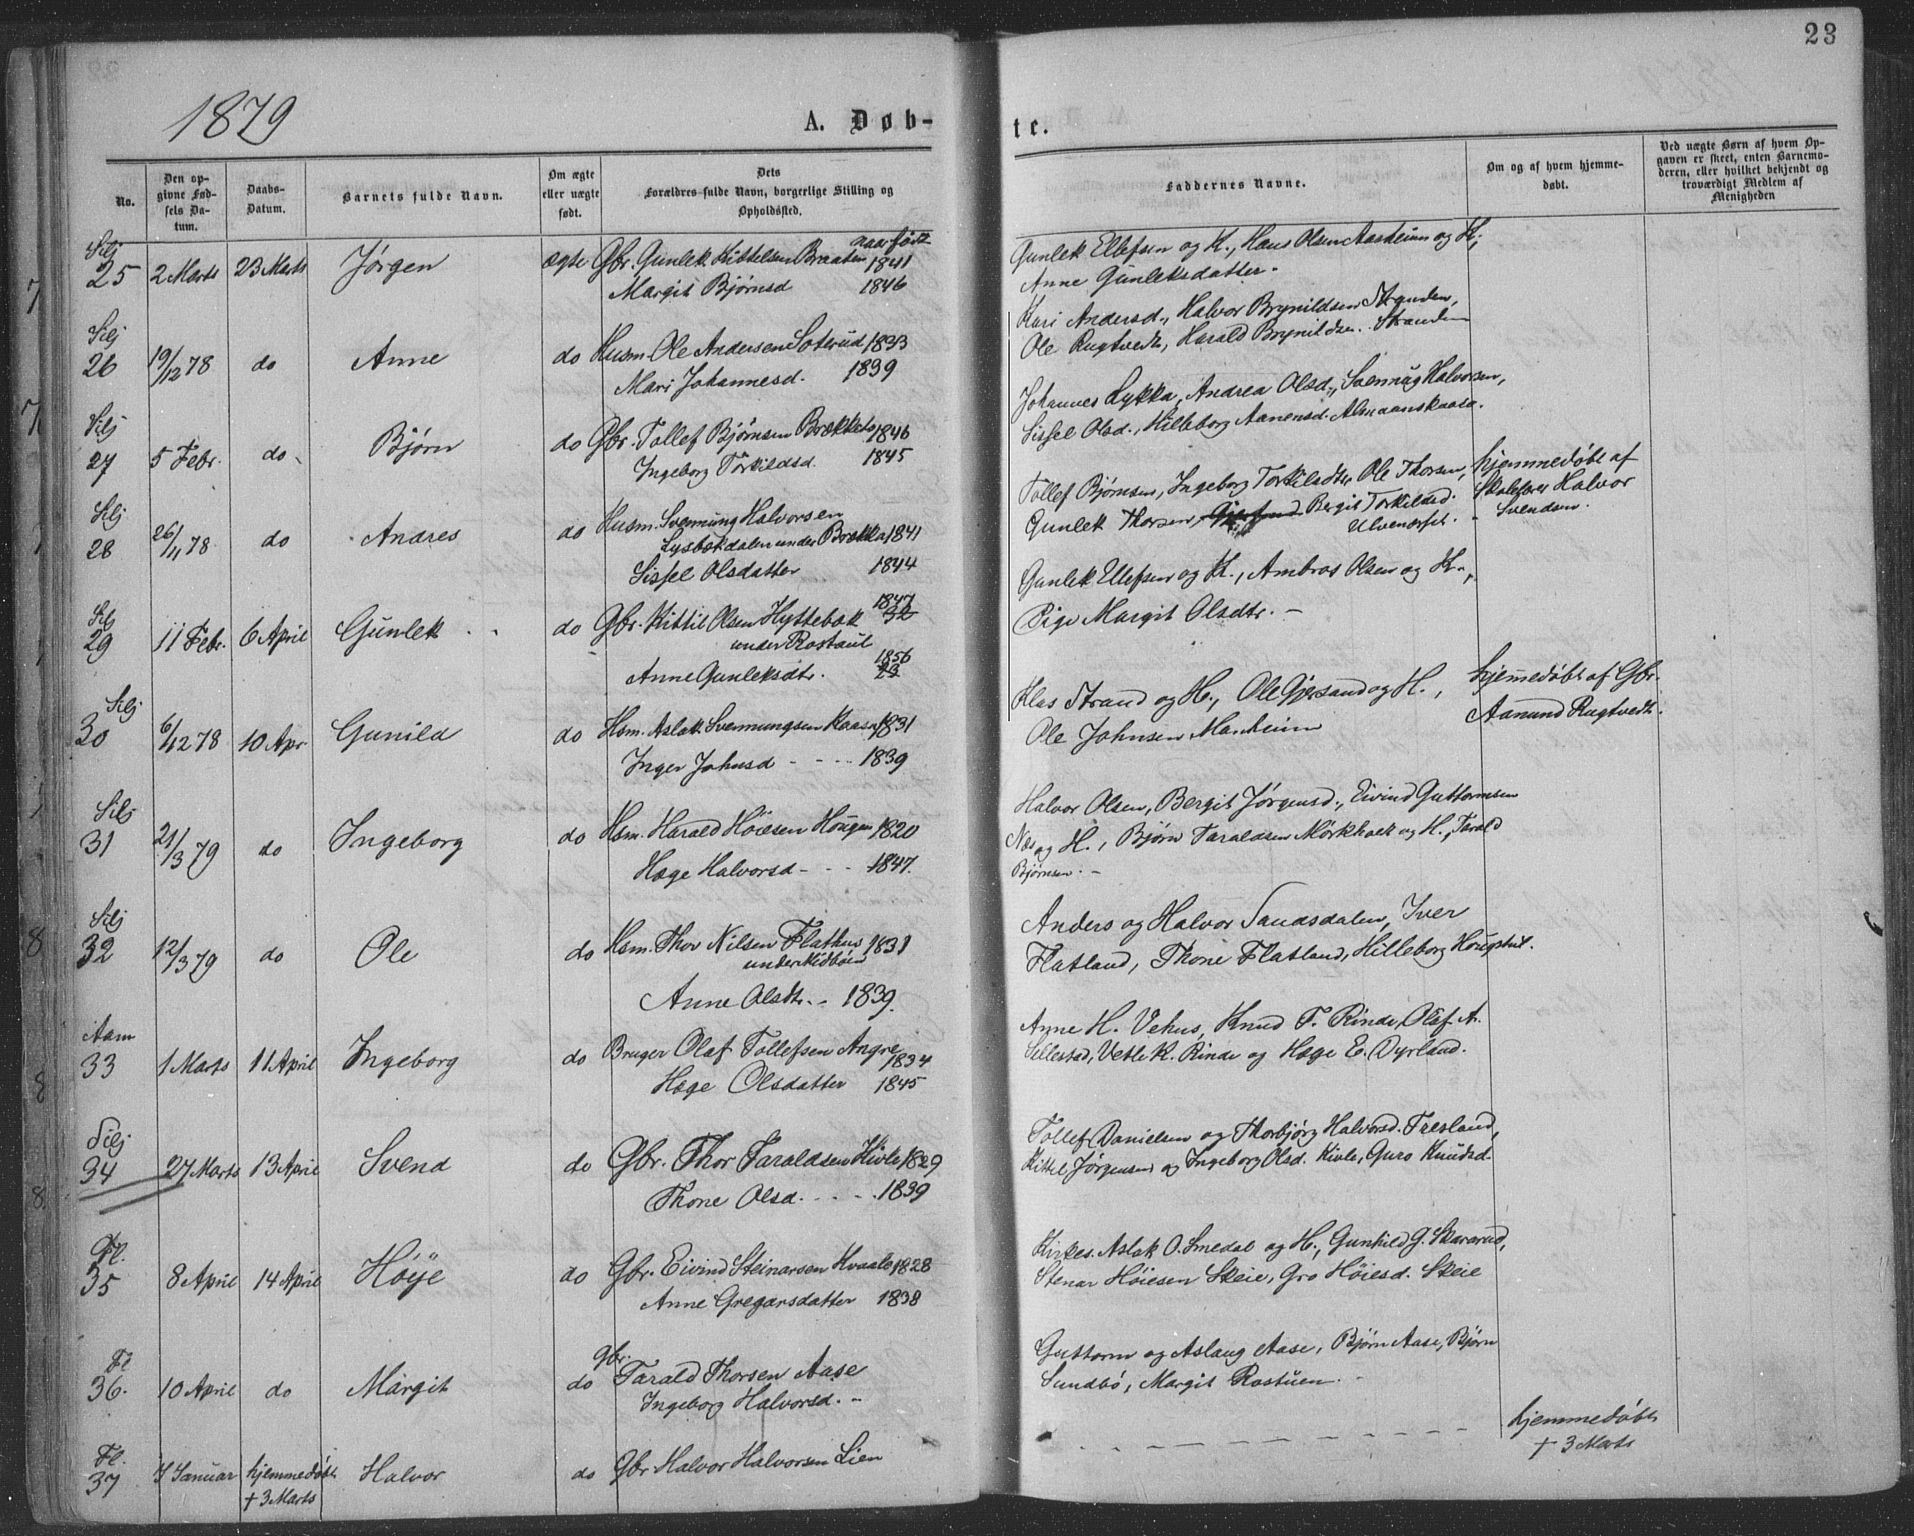 23
1879
A. Døb-
te.
No.
Den op-
givne Fød-
sels Da-
tum.
Daabs-
Datum.
Barnets fulde Navn.
Om ægte
eller uægte
født.
Dets
Forældres fulde Navn, borgerlige Stilling og
Opholdssted.
Faddernes Navne.
Om og af hvem hjemme-
døbt.
Ved uægte Børn af hvem Op-
gaven er skeet, enten Barnemo-
deren, eller hvilket bekjendt og
troværdigt Medlem af
Menigheden
naar født
Silj
25 2 Marts 23 Marts Jørgen ægte Gbr. Gunlek Kittelsen Braaten 1841
Margit Bjørnsd 1846
Gunlek Ellefsen og K., Hans Olsen Aasheim og K,
Anne Gunleksdatter.
Silj
26 19/12 78 do Anne do Husm. Ole Andersen Soterud 1833
Mari Johannesd. 1839
Kari Andersd., Halvor Brynildsen Stranden,
Ole Rugtvedt, Harald Brynildsen Stranden
Silj
27 5 Febr. do Bjørn do Gbr. Tollef Bjørnsen Brekketo 1846
Ingeborg Torkildsd. 1845
Johannes Lykka, Andrea Olsd., Svennug Halvorsen,
Sissel Olsd., Hilleborg Aanensd. Almaanskaasa.
Silj
28 26/11 78 do Andres do Husm. Svennung Halvorsen
Lysbekdalen under Brekka 1841
Sissel Olsdatter 1844
Tollef Bjørnsen, Ingeborg Torkilsdtr, Ole Thorsen,
Gunlek Thorsen, Bergit Torkildsd.
Ulvenæset.
hjemmedøbt af
Skolelærer Halvor
Svendsen.
Silj
29 11 Febr. 6 April Gunlek do Gbr. Kittil Olsen Hyttebæk 1847
32
under Rostaul
Anne Gunleksdtr. 1856
23
Gunlek Ellefsen og K., Ambros Olsen og K.,
Pige Margit Olsdtr. -
Silj
30 6/12 78 10 Apr Gunild do Hsm. Aslak Svennungsen Kaasa 1831
Inger Johnsd - - - - 1839
Klas Strand og H., Ole Gjersand og H.,
Ole Johnsen Manheim
hjemmedøbt af Gbr.
Aanund Rugtvedt.
Silj
31 21/3 79 do Ingeborg do Hsm. Harald Höiesen Hougen 1820
Hæge Halvorsd - - - 1847.
Halvor Olsen, Bergit Jørgensd., Eivind Guttormsen
Næs og H., Bjørn Taraldsen Mørkhoelt og H., Tarald
Bjørnsen. -
Silj
32 12/3 79 do Ole do Hsm. Thor Nilsen Flathus 1831
under Midbøen
Anne Olsdtr. - 1839.
Anders og Halvor Sandsdalen, Iver
Flatland, Thone Flatland, Hilleborg Hougstul.
Aam
33 1 Marts 11 April Ingeborg do Bruger Olaf Tollefsen Angre
1834
Hæge Olsdatter 1845
Anne H. Vehus, Knud T. Rinde, Olaf A.
Sillestad, Vetle K. Rinde og Hæge E. Dyrland.
Silj
34 27 Marts 13 April Svend do Gbr. Thor Taraldsen Kivle 1829
Thone Olsd. - - - - . 1839
Tollef Danielsen og Thorbjørg Halvorsd. Tresland,
Kittel Jørgensen og Ingeborg Olsd. Kivle, Guro Knudsd.
Fl.
35 8 April 14 April Höije do Gbr. Eivind Steinarsen Kvaale 1828
Anne Gregarsdatter 1838
Kirkes. Aslak O. Smedal og H., Gunhild G. Skararud,
Stenar Höiesen Skeie, Gro Höiesd. Skeie
Fl
36. 10 April do Margit do Gbr. Tarald Thorsen Aase
Ingeborg Halvorsd. -
Guttorm og Aslaug Aase, Bjørn Aase, Bjørn
Sundbö, Margit Rostuen. -
Fl.
37 7 Januar hjemmedøbt
+ 3 Marts Halvor do Gbr Halvor Halvorsen Lien
hjemmedøbt
+ 3 Marts